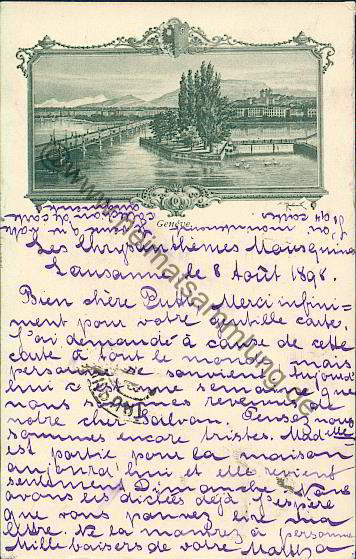 Genève
Les Chrysanthèmes Mousquines
Lausanne le 8 Août 1898.
Bien chère Putti. Merci infini-
ment pour votre gentille carte.
J'ai demandé à cause de cette
carte à tout le monde mais
personne se souvient. Aujourd'
hui c'est une semaine que
nous sommes revenues de
notre cher Salvan. Pensez nous
sommes encore tristes. Mad
est partie pour la maison
aujourd'hui et elle revient
seulement Dimanche. Nous
avons les dictées déjà. J'espère
que vous pouvez lire ma
lettre. Ne la montrez à personne
Mille baisers de votre Martha
heimatsammlung.de